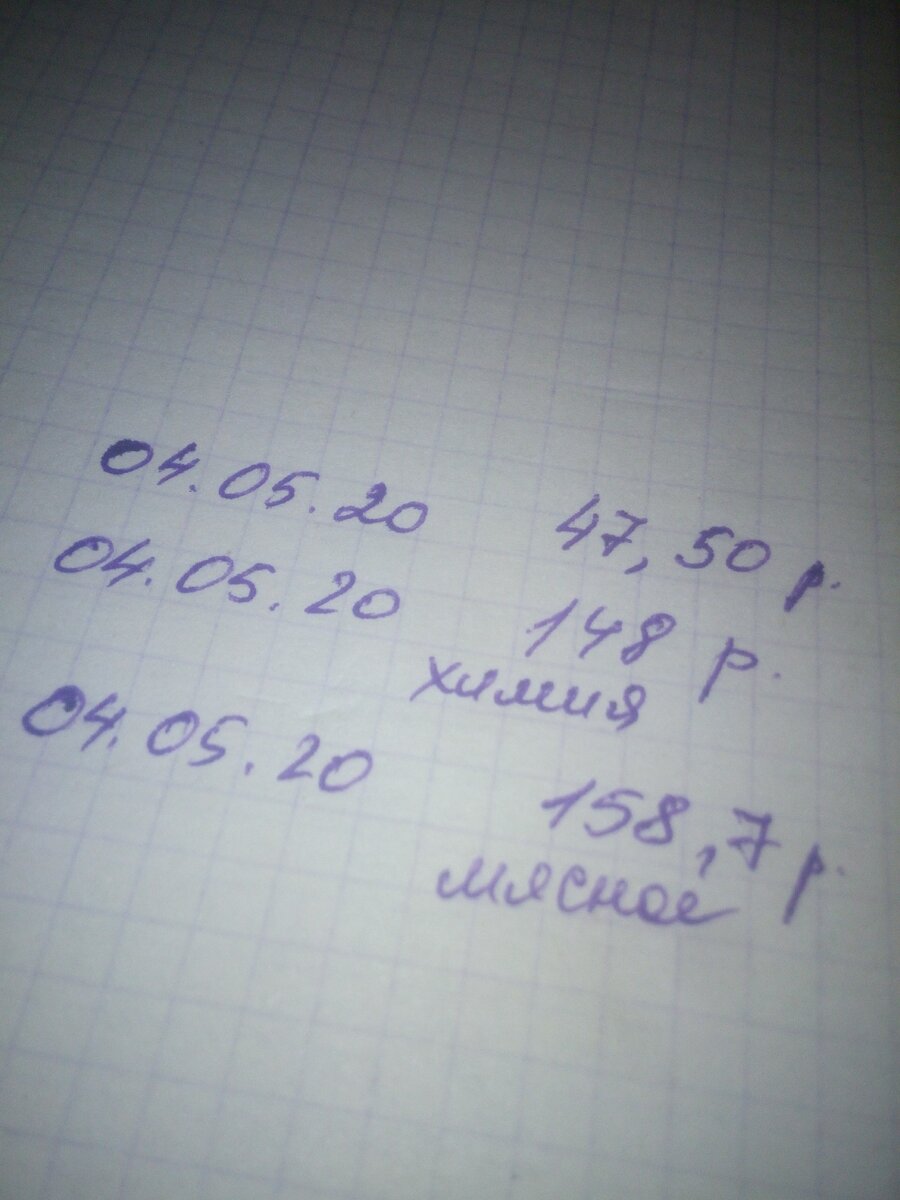 04.05.20 47,50 р.
04.05.20 148 р.
химия
04.05.20 158,7 р.
мясное